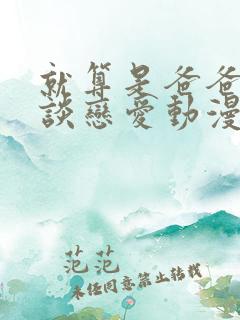 就算是爸爸
談戀愛動漫
范范
未经同意禁止转载